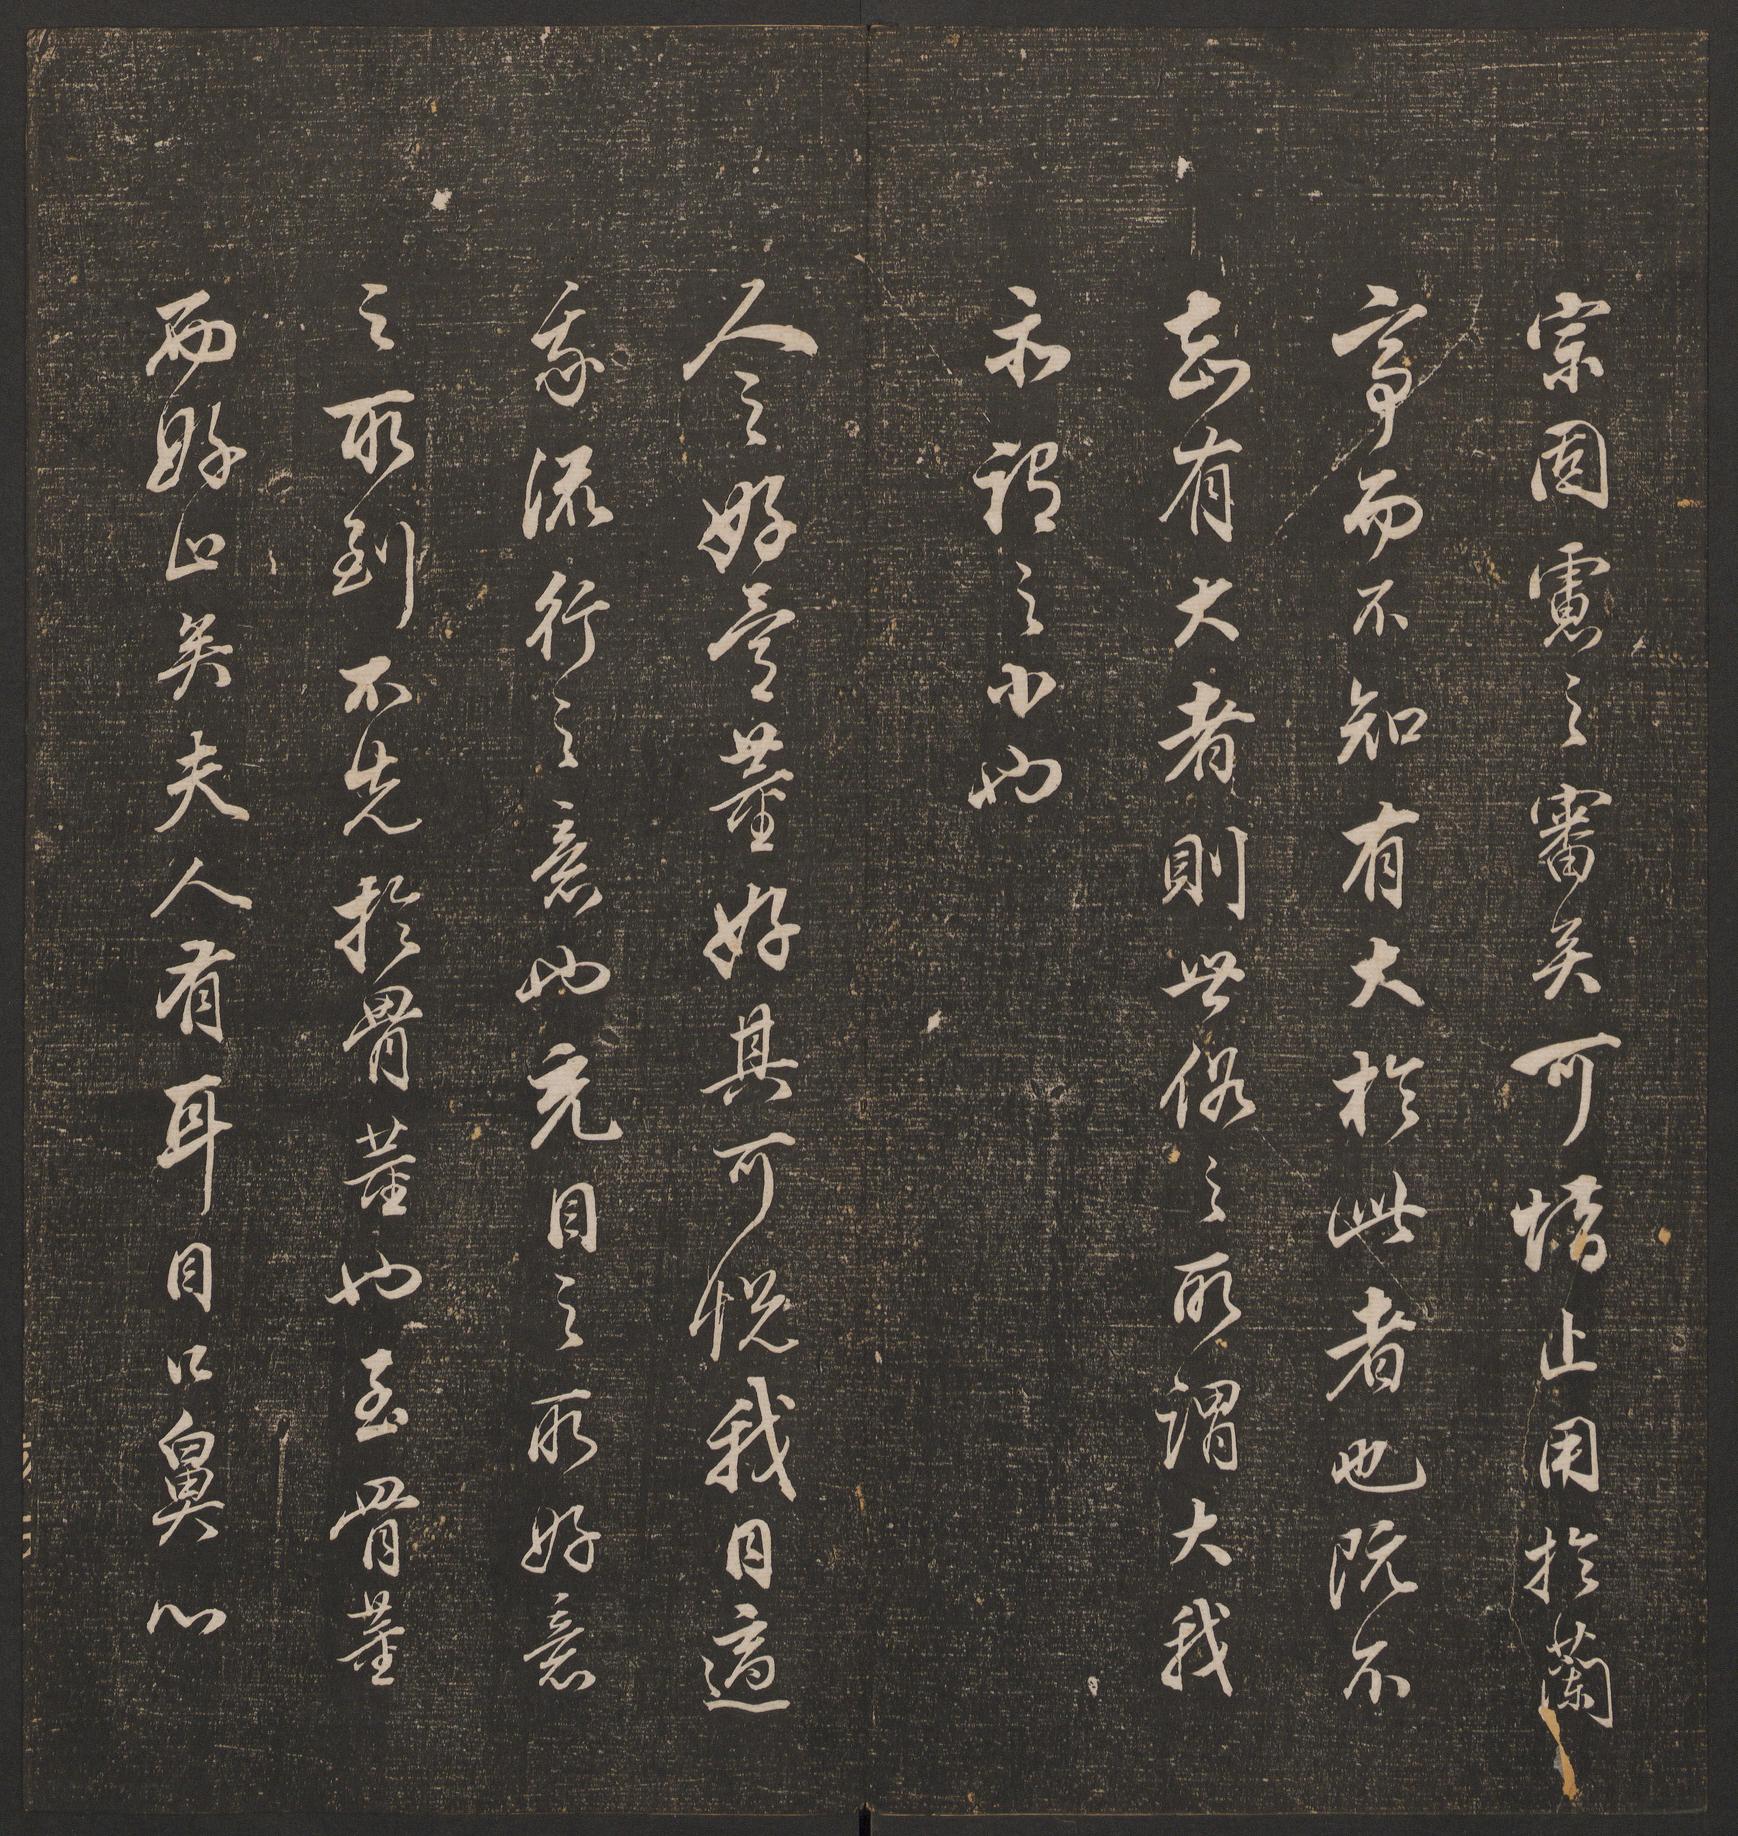 宗固慮之審矣可惜止用於蘭
亭而不知有大於此者也既不
志有大者則世俗之所謂大我
亦視之小也
人之好骨董好其可悅我目適
我流行之意也充目之所好意
之所到不先於骨董也至骨董
而好止矣夫人有耳目口鼻心